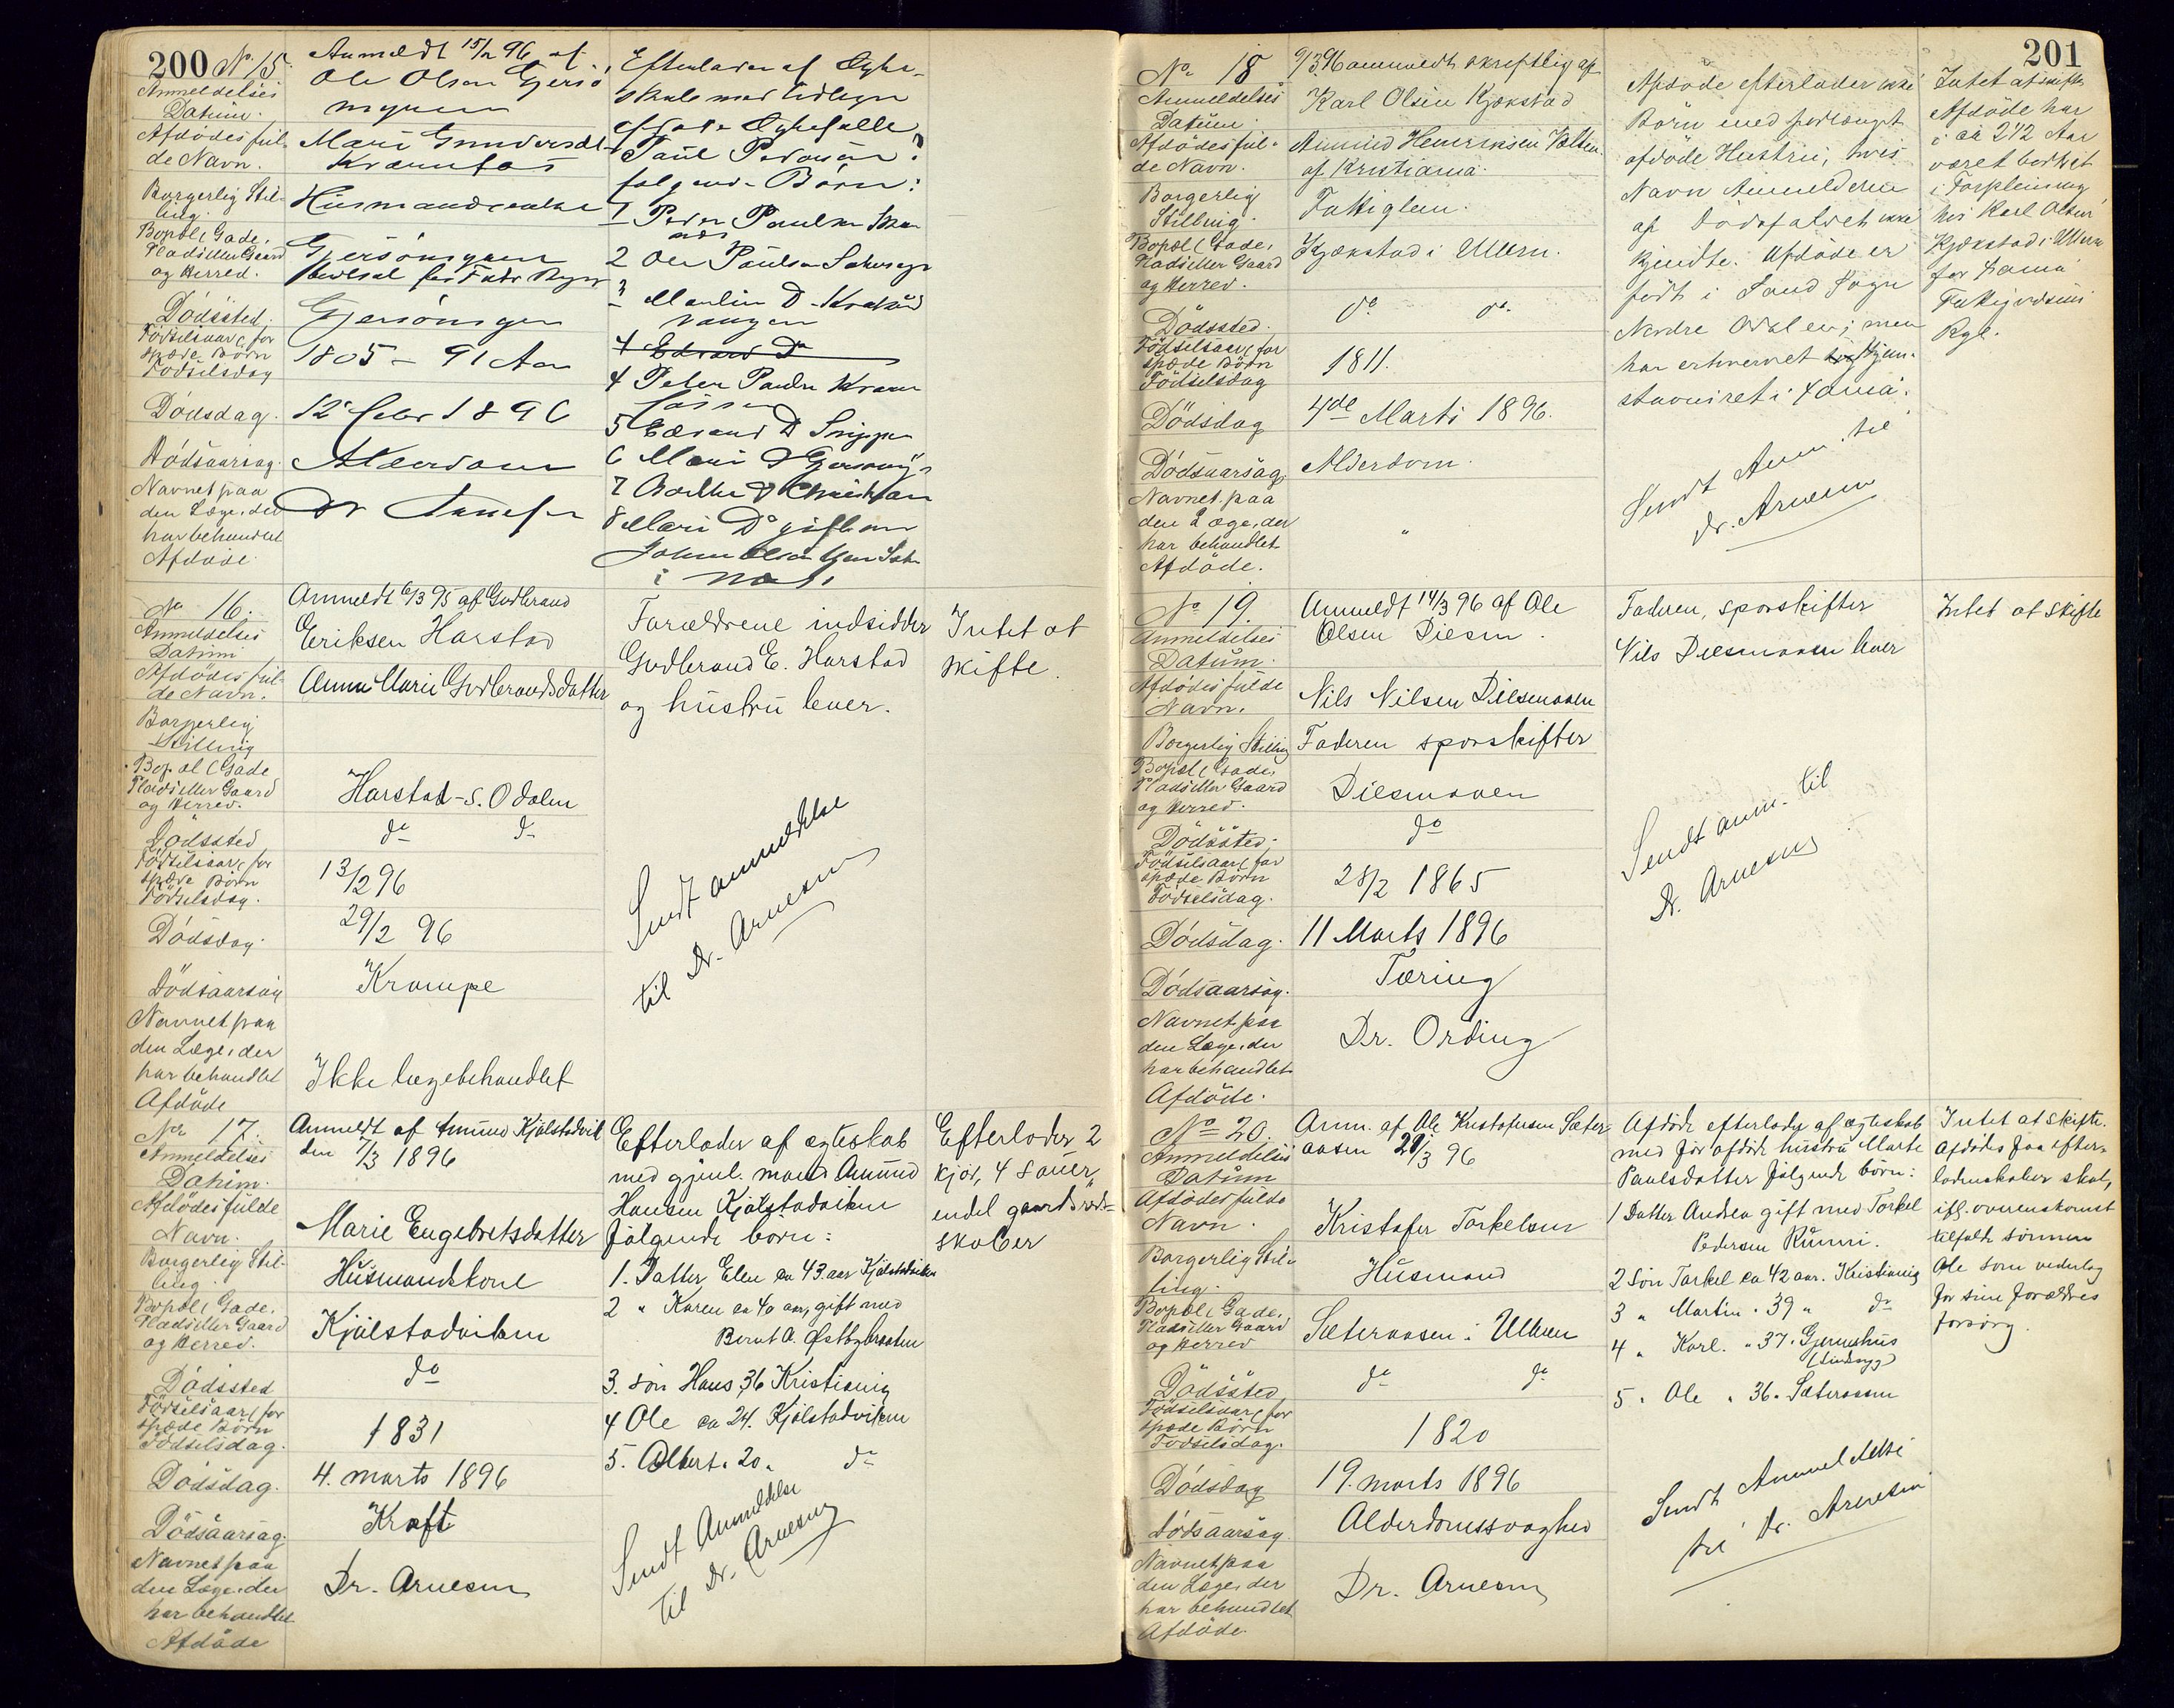 200 No 15.
Anmeldelses
Datum.
Anmeldt 15/2 96 af
Ole Olsen Gjersö
myren
Afdödes ful-
de Navn.
Mari Gundersdt
Borgerlig Stil-
ling.
Husmandsenke
Bopæl (Gade,
Plads eller Gaard
og Herred.
Gjersömyren
Dödssted.
Gjersömyren
Födselsaar, for
spæde Börn
Födselsdag
1805 - 91 Aar
Dödsdag.
12 febr 1896
Dödsaarsag.
Alderdom
Navnet paa
den Læge, der
har behandlet
Afdöde.
Dr
Efterlader af Egte-
skab med tidligere
afdöde Egtefælle
Paul Pedersen
følgende Börn:
1 Peder Paulsen
2 Ole Paulsen
3 Martin Do
4 Edvard Do
4 Peter Paulsen
5 Edvard Do
6
7
8 Mari Do gift m
No 16.
Anmeldelses
Datum
Anmeldt 6/3 95 af Gudbrand
Eriksen Harstad
Afdödes ful-
de Navn.
Anne Marie Gudbrandsdatter
Borgerlig
Stilling
Bopæl (Gade
Plads eller Gaard
og Herred.
Harstad - S. Odalen
Dödssted
do do
Födselsaar, for
spæde Börn
Födselsdag.
13/2 96
Dödsdag.
29/2 96
Dödsaarsag
Krampe
Navnet paa
den Læge, der
har behandlet
Afdöde
Ikke lægebehandlet
Forældrene indsidder
Gudbrand E. Harstad
og hustru lever.
Sendt anmeldelse
til Dr. Arnesen
Intet at
skifte.
No 17.
Anmeldelses
Datum.
Anmeldt af Amund Kjölstadvik
den 7/3 1896
Afdödes fulde
Navn.
Marie Engebretsdatter
Borgerlig Stil-
ling.
Husmandskone
Bopæl (Gade,
Plads eller Gaard
og Herred.
Kjölstadviken
Dödssted
do
Födselsaar, for
spæde Börn
Födselsdag.
1831
Dödsdag.
4. marts 1896
Dödsaarsag.
Kræft
Navnet paa
den Læge, der
har behandlet
Afdöde
Dr. Arnesen
Efterlader af ægteskab
med gjenl. mand Amund
Hansen Kjölstadviken
følgende börn:
1. Datter Elen ca 43 aar Kjölstadviken
2 " Karen ca 40 aar, gift med
Bernt A. Østbybraaten
3. sön Hans 36 Kristiania
4 Ole ca 24. Kjölstadviken
5. Albert. 20. do
Sendt Anmeldelse
til Dr. Arnesen
Efterlader 2
kjör, 4 sauer,
endel gaardsred-
skaber
201
No 18
Anmeldelses
Datum.
9/3 96 anmeldt skriftlig af
Karl Olsen Kjækstad
Afdödes ful-
de Navn.
Amund Henriksen
af Kristiania.
Borgerlig
Stilling.
Fattiglem.
Bopæl (Gade,
Plads eller Gaard
og Herred.
Kjækstad i Ullern.
Dödssted.
do do.
Födselsaar, for
spæde Börn
Födselsdag
1811.
Dödsdag
4de Marts 1896.
Dödsaarsag.
Alderdom.
Navnet paa
den Læge, der
har behandlet
Afdöde.
"
Afdöde efterlader ikke
Börn med forlængst
afdöde Hustru, hvis
Navn Anmelderen
af Dödsfaldet ikke
kjendte. Afdöde er
født i Sand Sogn
Nordre Odalen; men
har erhvervet sig Hjem-
stavnsret i Xania.
Sendt Anm. til
Dr. Arnesen
Intet at skifte
Afdöde har
i ca 2 1/2 Aar
været bortsat
i Forpleining
hos Karl Olsen
Kjækstad i Ullern
for Xania
Fattigvæsens
Rgl.
No 19.
Anmeldelses
Datum.
Anmeldt 14/3 96 af Ole
Olsen Diesen.
Afdödes fulde
Navn.
Nils Nilsen Diesmoen
Borgerlig Stilling
Faderen sporskifter
Bopæl (Gade,
Plads eller Gaard
og Herred.
Diesmoen
Dödssted.
do
Födselsaar, for
spæde Börn
Födselsdag.
28/2 1865
Dödsdag.
11 Marts 1896
Dödsaarsag.
Tæring
Navnet paa
den Læge, der
har behandlet
Afdöde.
Dr. Ording
Faderen, sporskifter
Nils Diesmoen lever
Sendt anm. til
Dr. Arnesen
Intet at skifte
No 20.
Anmeldelses
Datum
Anm. af Ole Kristofersen Sæter-
aasen 21/3 96
Afdödes fulde
Navn.
Kristofer Torkelsen
Borgerlig Stil-
ling.
Husmand
Bopæl (Gade,
Plads eller Gaard
og Herred
Sæteraasen i Ullern
Dödssted
do do
Födselsaar, for
spæde Börn
Födselsdag.
1820
Dödsdag
19. marts 1896
Dödsaarsag.
Alderdomssvaghed
Navnet paa
den Læge, der
har behandlet
Afdöde.
Dr. Arnesen
Afdöde efterlader af ægteskab
med för afdöde hustru Marte
Paulsdatter følgende börn:
1 Datter Andrea gift med Torkel
Pedersen Runni.
2 Sön Torkel ca 42 aar. Kristiania
3 " Martin " 39 " do
4 " Karl. " 37.
(sindssyg)
5 " Ole " 36. Sæteraasen
Sendt Anmeldelse
til Dr. Arnesen
Intet at skifte.
Afdödes faa efter-
ladenskaber skal,
ifl. overenskomst
tilfalde sönnen
Ole som vederlag
for sine forældres
forsörg.